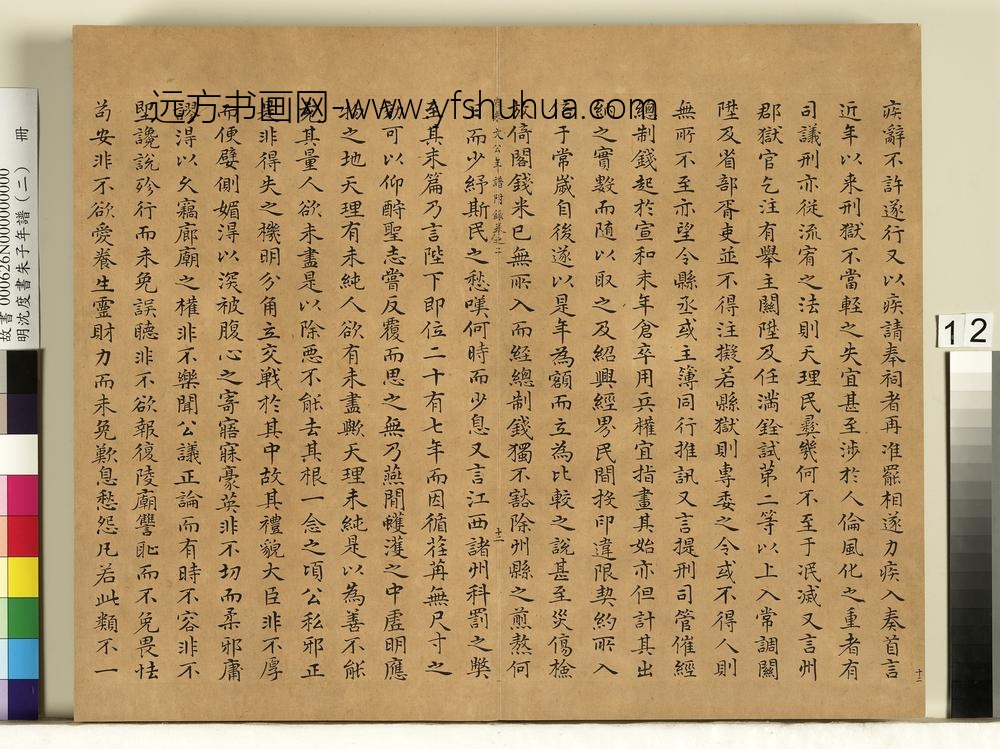 疾辭不許遂行又以疾請奉祠者再准罷相遂力疾入奏首言
近年以来刑獄不當輕之失宜甚至涉於人倫風化之重者有
司議刑亦從流宥之法則天理民彝幾何不至于泯滅又言州
郡獄官乞注有舉主關陞及任滿銓試第二等以上入常調關
陞及省部胥吏並不得注擬若縣獄則專委之令或不得人則
無所不至亦望令縣丞或主簿同行推訊又言提刑司管催經
總制錢起於宣和末年倉卒用兵權宜指畫其始亦但計其出
納之實數而随以取之及紹興經界民間投印違限契約所入
倍于常歲自後遂以是年為額而立為比較之說甚至災傷檢
放倚閣錢米已無所入而經總制錢獨不豁除州縣之煎熬何
文公年譜附錄卷之二
十二
而少紓斯民之愁嘆何時而少息又言江西諸州科罰之獘
至其末篇乃言陛下即位二十有七年而因循荏苒無尺寸之
可以仰酧聖志嘗反覆而思之無乃燕閒蠖濩之中虛明應
物之地天理有未純人欲有未盡歟天理未純是以為善不能
充其量人欲未盡是以除惡不能去其根一念之頃公私邪正
是非得失之機明分角立交戦於其中故其禮貌大臣非不厚
而便嬖側媚得以深被腹心之寄寤寐豪英非不切而柔邪庸
謬得以久竊廊廟之權非不樂聞公議正論而有時不容非不
堲讒說殄行而未免誤聴非不欲報復陵廟讐恥而不免畏怯
苟安非不欲愛養生靈財力而未免歎息愁怨凡若此類不一
十二
远方书画网-www.yfshuhua.com
故書 000626N000000000
明沈度書朱子年譜(二) 冊
12